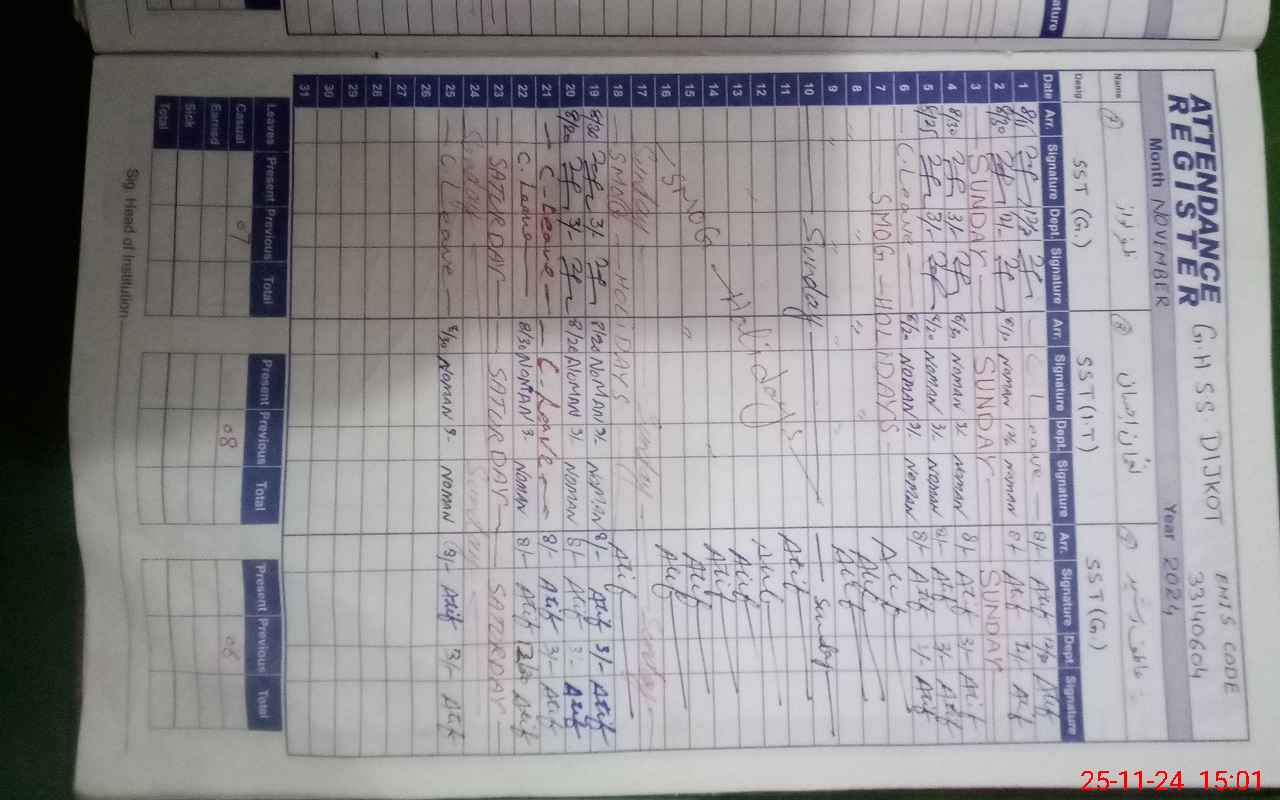 ATTENDANCE REGISTER G.H SS DIJKOT EMIS CODE 33140604
Month NOVEMBER Year 2024
Name (7) (8) (9)
Desig SST (G.) SST (I.T) SST (G.)
Date Arr. Signature Dept. Signature Arr. Signature Dept. Signature Arr. Signature Dept. Signature
1 C. Leave - 8/- Atif Atif
2 8/30 NOMAN NOMAN 8/- Atif Atif
3 SUNDAY SUNDAY SUNDAY
4 8/30 3/- 8/30 NOMAN 3/- NOMAN 8/- Atif 3/- Atif
5 8/25 3/- 8/20 NOMAN 3/- NOMAN 8/- Atif 3/- Atif
6 C. Leave 8/20 NOMAN 3/- NOMAN 8/- Atif 3/- Atif
7 SMOG - HOLIDAYS - Atif
8 " " " Atif
9 " " " Atif
10 Sunday Sunday
11 Atif
12 Atif
13 Holidays Atif
14 Atif
15 SMOG Atif
16 Atif
17 Sunday Sunday Sunday
18 SMOG - HOLIDAYS Atif
19 8/20 3/- 8/20 NOMAN 3/- NOMAN 8/- Atif 3/- Atif
20 8/20 3/- 8/20 NOMAN 3/- NOMAN 8/- Atif 3/- Atif
21 - C. Leave - - C. Leave - 8/- Atif 3/- Atif
22 C. Leave - 8/30 NOMAN 3- NOMAN 8/- Atif 12/30 Atif
23 - SATURDAY - SATURDAY - SATURDAY -
24 Sunday Sunday
25 - C. Leave - 8/30 NOMAN 3- NOMAN 8/- Atif 3/- Atif
26
27
28
29
30
31
Leaves Present Previous Total Present Previous Total Present Previous Total
Casual 07 08 06
Earned
Sick
Total
Sig. Head of Institution
ature
25-11-24 15:01